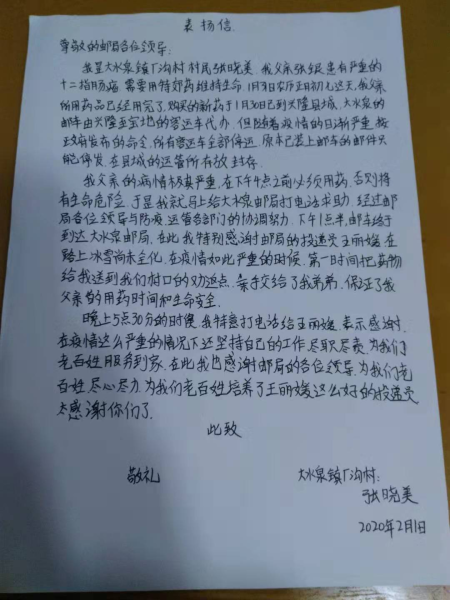 表扬信
尊敬的邮局各位领导:
我是大水泉镇厂沟村村民张晓美。我父亲张银患有严重的
十二指肠癌需要用特效药维持生命1月31日农历正月初七这天,我父亲
所用药品已经用完了,购买的新药于1月30日已到兴隆县城,大水泉的
邮车由兴隆至宝地的客运车代办,但随着疫情的日渐严重,按
政府发布的命令,所有客运车全部停运,原本已装上邮车的邮件只
能停发,在县城的运管所存放封存。
我父亲的病情极其严重,在下午4点之前必须用药,否则将
有生命危险,于是我就马上给大水泉邮局打电话求助,经过邮
局各位领导与防疫,运管各部门的协调努力,下午1点半,邮车终于
到达大水泉邮局,在此我特别感谢邮局的投递员王丽媛,在
路上冰雪尚未全化,在疫情如此严重的时候,第一时间把药物
给我送到我们村口的劝返点,亲手交给了我弟弟,保证了我
父亲的用药时间和生命安全。
晚上5点30分的时候,我特意打电话给王丽媛,表示感谢,
在疫情这么严重的情况下还坚持自己的工作,尽职尽责,为我们
老百姓服务到家,在此我也感谢邮局的各位领导,为我们老
百姓尽心尽力,为我们老百姓培养了王丽媛这么好的投递员
太感谢你们了.
此致
敬礼
大水泉镇厂沟村:
张晓美
2020年2月1日